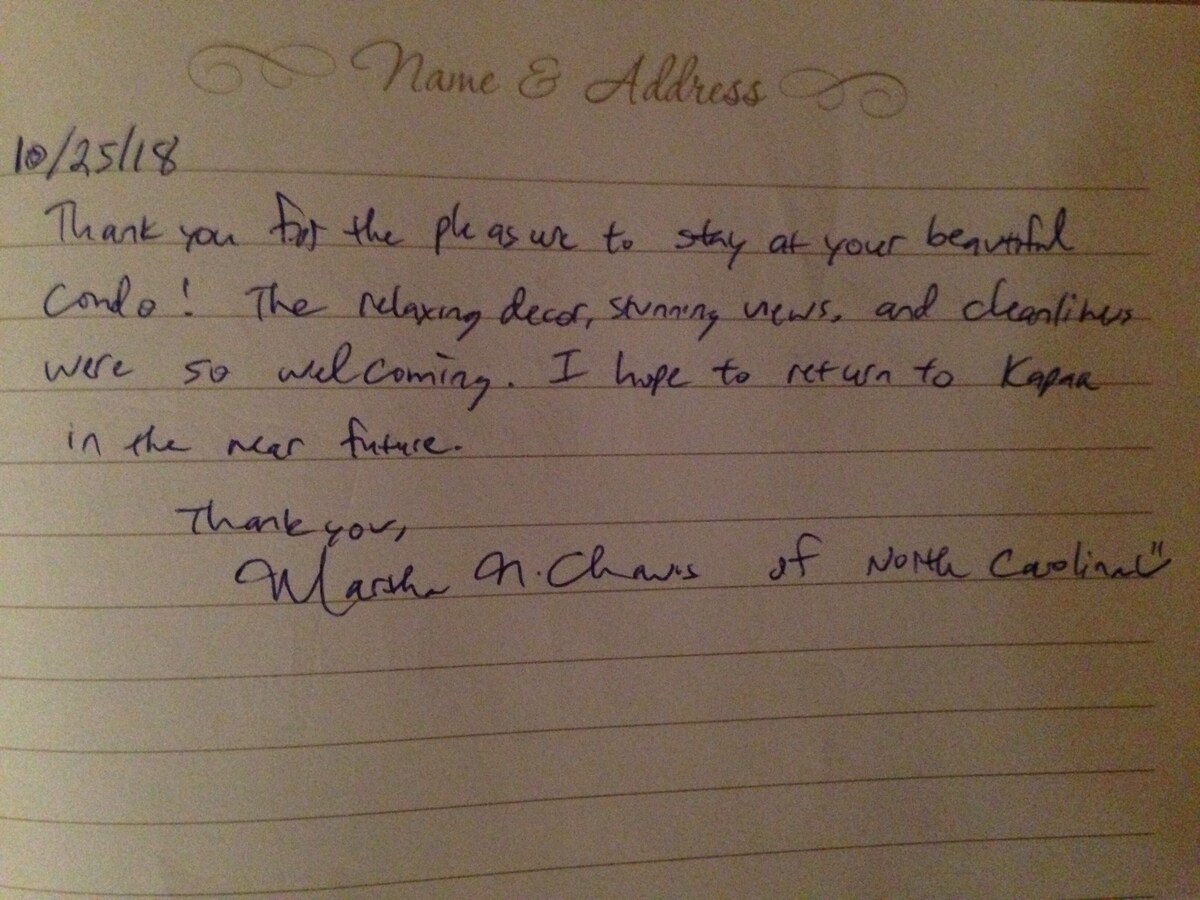 Name & Address
10/25/18
Thank you for the pleasure to stay at your beautiful
Condo! The relaxing decor, stunning views, and cleanliness
were so welcoming. I hope to return to Kapaa
in the near future.
Thank you,
Marsha N. Chavis of North Carolina